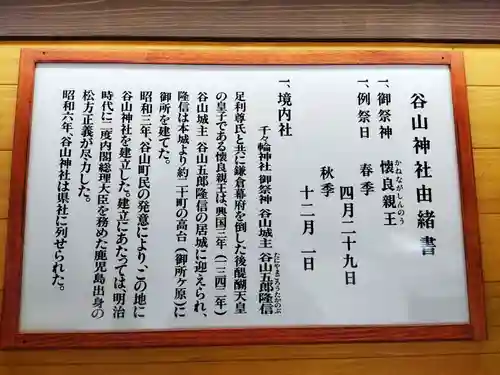 谷山神社由緒書
一、御祭神 懐良親王
かねながしんのう
一、例祭日 春季 四月二十九日
秋季 十二月 一日
一、境内社
千々輪神社 御祭神 谷山城主 谷山五郎隆信
たにやまごろうたかのぶ
足利尊氏と共に鎌倉幕府を倒した後醍醐天皇
の皇子である懐良親王は、興国三年(一三四二年)
谷山城主 谷山五郎隆信の居城に迎えられ、
隆信は本城より約二十町の高台(御所ヶ原)に
御所を建てた。
昭和三年、谷山町民の発意により、この地に
谷山神社を建立した。建立にあたっては、明治
時代に二度内閣総理大臣を務めた鹿児島出身の
松方正義が尽力した。
昭和六年、谷山神社は県社に列せられた。